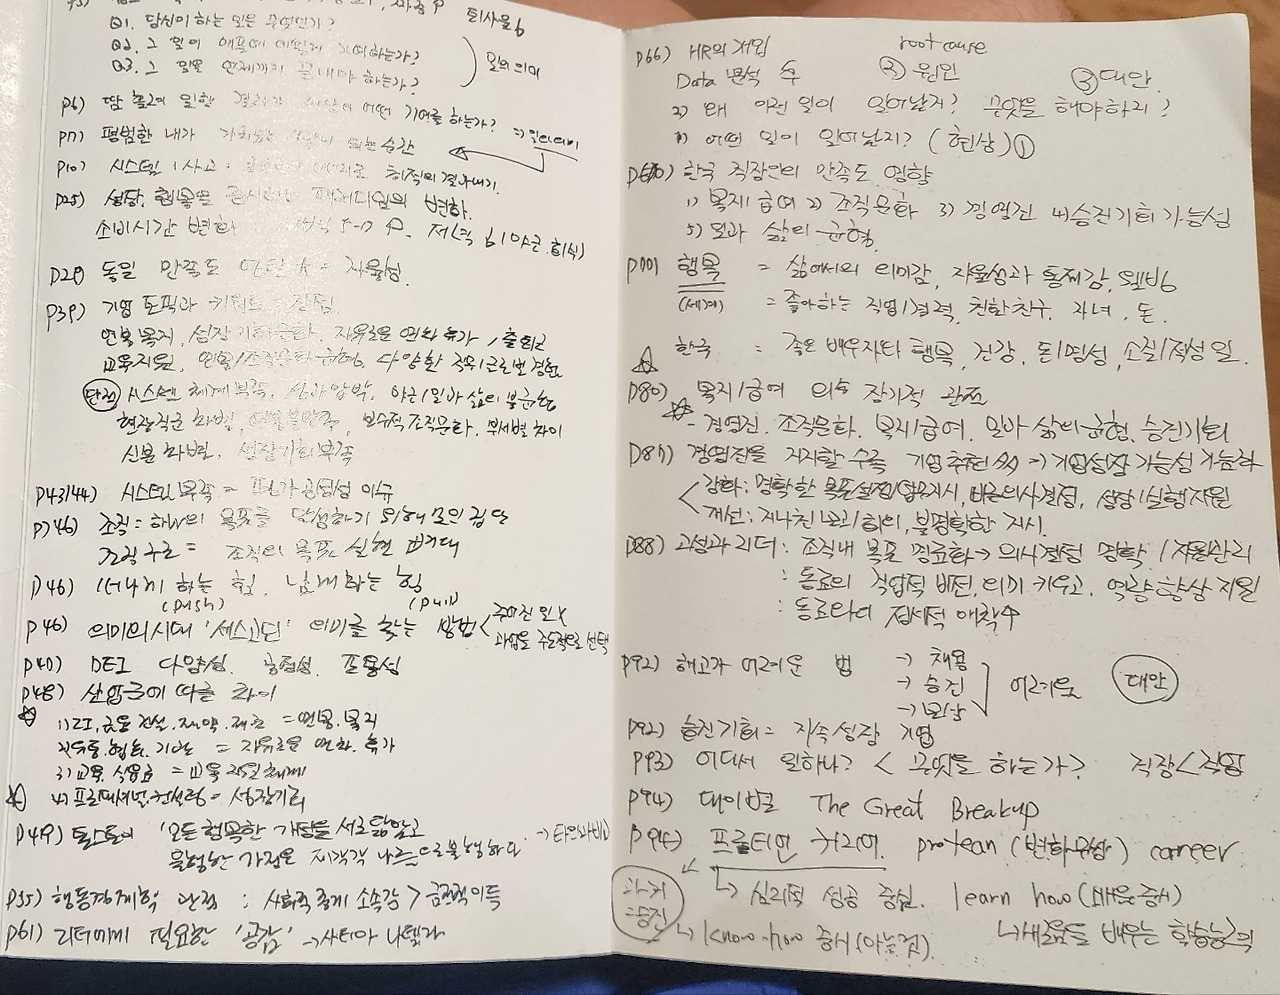 퇴사율
Q1. 당신이 하는 일은 무엇인가?
Q2. 그 일이 어떻게 기여하는가?
Q3. 그 일을 언제까지 끝내야 하는가?
일의 의미
P6) 일한 결과가 어떤 기여를 하는가? ⇒
P7) 평범한 내가 되는 순간
P10) 시스템 사고 : 최적의 결과내기.
P25) 성장, 행복을 패러다임의 변화.
소비시간 변화 저녁 (야근.회식)
P28 동일 만족도 = 자율성
P39) 기업 토픽과 키워드 = 장점.
연봉 복지, 성장기회 문화, 자유로운 연차 휴가 / 출퇴근
교육지원, 다양한 직무/근로별 경험
단점 시스템 체계부족, 성과압박, 야근/일과 삶의 불균형
현장직군 차별, 보수적 조직문화. 부서별 차이
신분 차별, 성장기회 부족
P43/44) 시스템 부족 = 평가 공정성 이슈
P46) 조직 = 하나의 목표를 달성하기 위해 모인 집단
조직 구조 = 조직의 목표 실현
P46) 떠나게 하는 힘. 남게 하는 힘
(push) (pull)
P46) 의미의 시대 '세스고딘' 의미를 찾는 방법 < 주어진 일 X
과업을 주도적으로 선택
DEI 다양성. 공정성. 포용성
P48) 산업군에 따른 차이
1) IT, 금융, 건설. 제약. 제조 = 연봉. 복지
= 자유로운 연차. 휴가
3) 교육. 식음료 = 교육 지원 체계
4) 프로페셔널. 컨설팅 = 성장기회
P49) 톨스토이 '모든 행복한 가정은 서로 닮았고
불행한 가정은 제각각 나름으로 불행하다' →
P55) 행동경제학 관점 : 사회적 동기 소속감 > 금전적 이득
P61) 리더에게 필요한 '공감' → 사티아 나델라
P66) HR의 개입 root cause
Data 분석 ② 원인 ③ 대안.
2) 왜 이런 일이 일어났지? 무엇을 해야하지?
1) 어떤 일이 일어났지? (현상) ①
한국 직장인의 만족도 영향
1) 복지/급여 2) 조직문화 3) 경영진 4) 승진기회 가능성
5) 일과 삶의 균형.
행복 = 삶에서의 의미감, 자율성과 통제감, 웰빙
(세계) = 좋아하는 직업/경력, 친한친구, 자녀, 돈.
☆ 한국 = 좋은 배우자와 행복, 건강, 돈/명성, 소질/적성 일.
P80) 복지/급여 장기적 관점
☆ - 경영진. 조직문화. 복지/급여. 일과 삶의 균형. 승진기회
P87) 경영진을 지지할수록 기업추천 ⇒ 기업성장 가능성
< 강화 : 명확한 목표설정/업무지시, 빠른의사결정, 성장/실행지원
개선 : 지나친 보고/회의, 불명확한 지시.
P88) 고성과 리더 : 조직내 목표 명료화 → 의사결정 명확 / 자원관리
: 동료의 직업적 비전, 의미 키우고. 역량 향상 지원
: 동료와의 정서적 애착↑
P92) 해고가 어려운 법 → 채용
→ 승진 어려움 대안
→ 보상
P92) 승진기회 = 지속성장 기업
P93) 어디서 일하나? < 무엇을 하는가? 직장 < 직업
P94) 대이별 The Great Breakup
P94) 프로티언 커리어. protean (변화무쌍) career.
과거 = 승진
↳ 심리적 성공 중심. learn how (배움 중시)
↳ know-how 중시 (아는것). ↳ 새로움을 배우는 학습능력